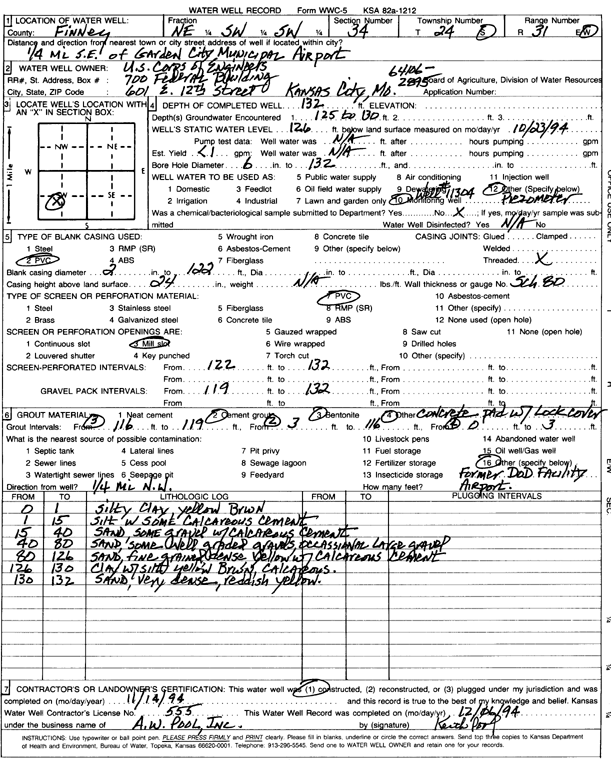 WATER WELL RECORD Form WWC-5 KSA 82a-1212
1 LOCATION OF WATER WELL: Fraction Section Number Township Number Range Number
County: Finney NE ¼ SW ¼ SW ¼ 34 T 24 S R 31 E/W
Distance and direction from nearest town or city street address of well if located within city?
1/4 Mi. S.E. of Garden City Municipal Airport
2 WATER WELL OWNER: U.S. Corps of Engineers
RR#, St. Address, Box # : 700 Federal Building 64106-2895 Board of Agriculture, Division of Water Resources
City, State, ZIP Code : 601 E. 12th Street Kansas City, Mo. Application Number:
3 LOCATE WELL'S LOCATION WITH AN "X" IN SECTION BOX:
N
NW NE
W E
SW SE
X
S
1 Mile
4 DEPTH OF COMPLETED WELL 132 ft. ELEVATION:
Depth(s) Groundwater Encountered 1 125 to 130 ft. 2 ft. 3 ft.
WELL'S STATIC WATER LEVEL 126 ft. below land surface measured on mo/day/yr 10/23/94
Pump test data: Well water was N/A ft. after hours pumping gpm
Est. Yield <1 gpm: Well water was N/A ft. after hours pumping gpm
Bore Hole Diameter 6 in. to 132 ft., and in. to ft.
WELL WATER TO BE USED AS: 5 Public water supply 8 Air conditioning 11 Injection well
1 Domestic 3 Feedlot 6 Oil field water supply 9 Dewatering 12 Other (Specify below)
Well # 11304
2 Irrigation 4 Industrial 7 Lawn and garden only 10 Monitoring well Piezometer
Was a chemical/bacteriological sample submitted to Department? Yes No X ; If yes, mo/day/yr sample was submitted
Water Well Disinfected? Yes N/A No
5 TYPE OF BLANK CASING USED: 5 Wrought iron 8 Concrete tile CASING JOINTS: Glued Clamped
1 Steel 3 RMP (SR) 6 Asbestos-Cement 9 Other (specify below) Welded
2 PVC 4 ABS 7 Fiberglass Threaded X
Blank casing diameter 2 in. to 122 ft., Dia in. to ft., Dia in. to ft.
Casing height above land surface 24 in., weight N/A lbs./ft. Wall thickness or gauge No. Sch. 80
TYPE OF SCREEN OR PERFORATION MATERIAL: 7 PVC 10 Asbestos-cement
1 Steel 3 Stainless steel 5 Fiberglass 8 RMP (SR) 11 Other (specify)
2 Brass 4 Galvanized steel 6 Concrete tile 9 ABS 12 None used (open hole)
SCREEN OR PERFORATION OPENINGS ARE: 5 Gauzed wrapped 8 Saw cut 11 None (open hole)
1 Continuous slot 3 Mill slot 6 Wire wrapped 9 Drilled holes
2 Louvered shutter 4 Key punched 7 Torch cut 10 Other (specify)
SCREEN-PERFORATED INTERVALS: From 122 ft. to 132 ft., From ft. to ft.
From ft. to ft., From ft. to ft.
GRAVEL PACK INTERVALS: From 119 ft. to 132 ft., From ft. to ft.
From ft. to ft., From ft. to ft.
6 GROUT MATERIAL: 1 Neat cement 2 Cement grout 3 Bentonite 4 Other Concrete pad w/ Lock cover
Grout Intervals: From 3 116 ft. to 119 ft., From 2 3 ft. to 116 ft., From 4 0 ft. to 3 ft.
What is the nearest source of possible contamination: 10 Livestock pens 14 Abandoned water well
1 Septic tank 4 Lateral lines 7 Pit privy 11 Fuel storage 15 Oil well/Gas well
2 Sewer lines 5 Cess pool 8 Sewage lagoon 12 Fertilizer storage 16 Other (specify below)
3 Watertight sewer lines 6 Seepage pit 9 Feedyard 13 Insecticide storage Former DOD Facility
Direction from well? 1/4 Mi. N.W. How many feet? Airport.
FROM TO LITHOLOGIC LOG FROM TO PLUGGING INTERVALS
0 1 Silty Clay, yellow Brwn
1 15 Silt w/ some Calcareous cement
15 40 SAND, some gravel w/ Calcareous cement
40 80 SAND, some well graded gravels, occassional large gravel
80 126 SAND, fine grained dense yellow w/ calcareous cement
126 130 Clay w/ silt, yellow Brwn, Calcareous.
130 132 SAND, very dense, reddish yellow.
7 CONTRACTOR'S OR LANDOWNER'S CERTIFICATION: This water well was (1) constructed, (2) reconstructed, or (3) plugged under my jurisdiction and was
completed on (mo/day/year) 11/14/94 and this record is true to the best of my knowledge and belief. Kansas
Water Well Contractor's License No. 555 This Water Well Record was completed on (mo/day/yr) 12/06/94
under the business name of A.W. Pool, Inc. by (signature) Keith Pool
INSTRUCTIONS: Use typewriter or ball point pen. PLEASE PRESS FIRMLY and PRINT clearly. Please fill in blanks, underline or circle the correct answers. Send top three copies to Kansas Department
of Health and Environment, Bureau of Water, Topeka, Kansas 66620-0001. Telephone: 913-296-5545. Send one to WATER WELL OWNER and retain one for your records.
OFFICE USE ONLY
T
R
E/W
SEC